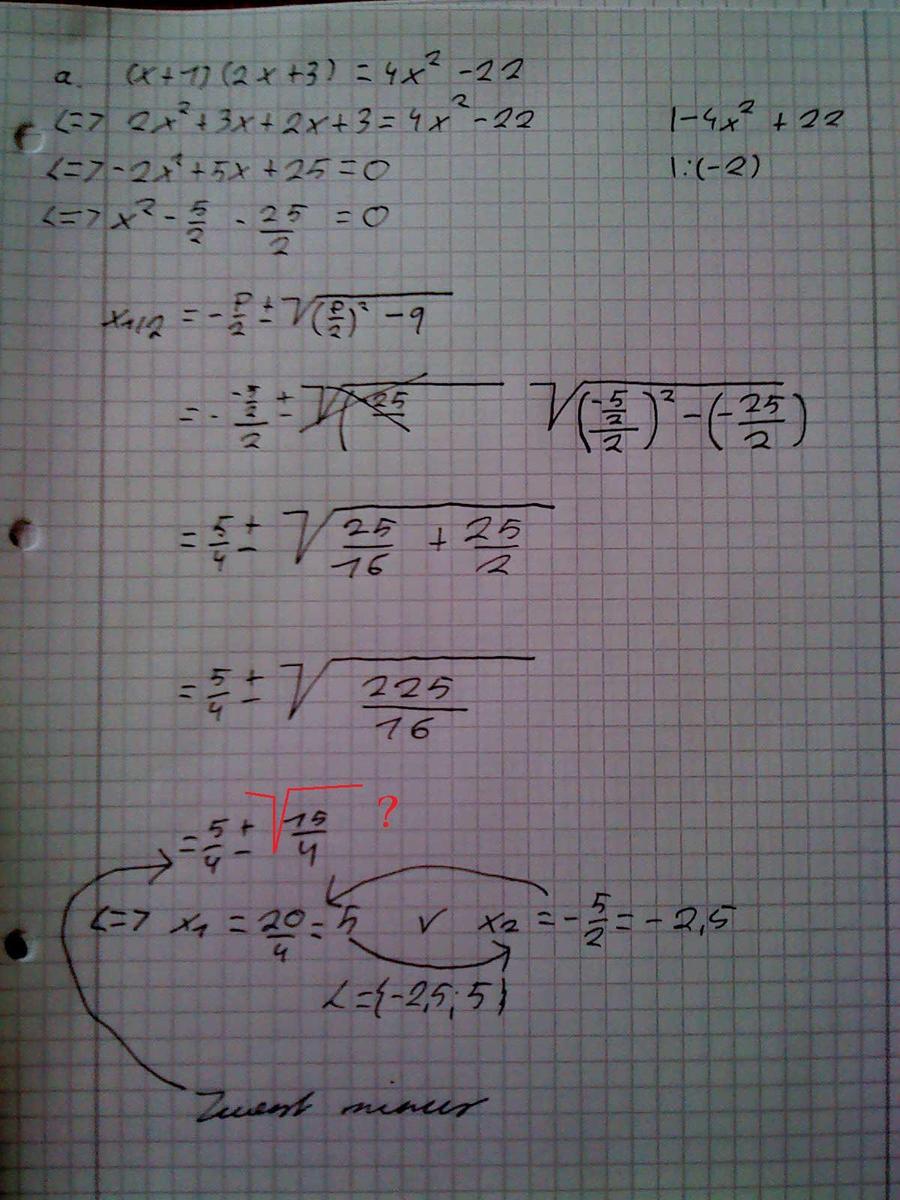 a. (x+1)(2x+3) = 4x² -22
<=> 2x²+3x+2x+3=4x²-22 |-4x² +22
<=> -2x²+5x+25=0 |:(-2)
<=> x² - 5/2 - 25/2 = 0
x1/2 = - p/2 ± √((p/2)² - q)
= - (-5/2)/2 ± √((-5/2)/2)² - (-25/2)
= 5/4 ± √(25/16 + 25/2)
= 5/4 ± √(225/16)
= 5/4 ± √(15/4) ?
<=> x1 = 20/4 = 5 ∨ x2 = -5/2 = -2,5
L={-2,5; 5}
Zuerst minus